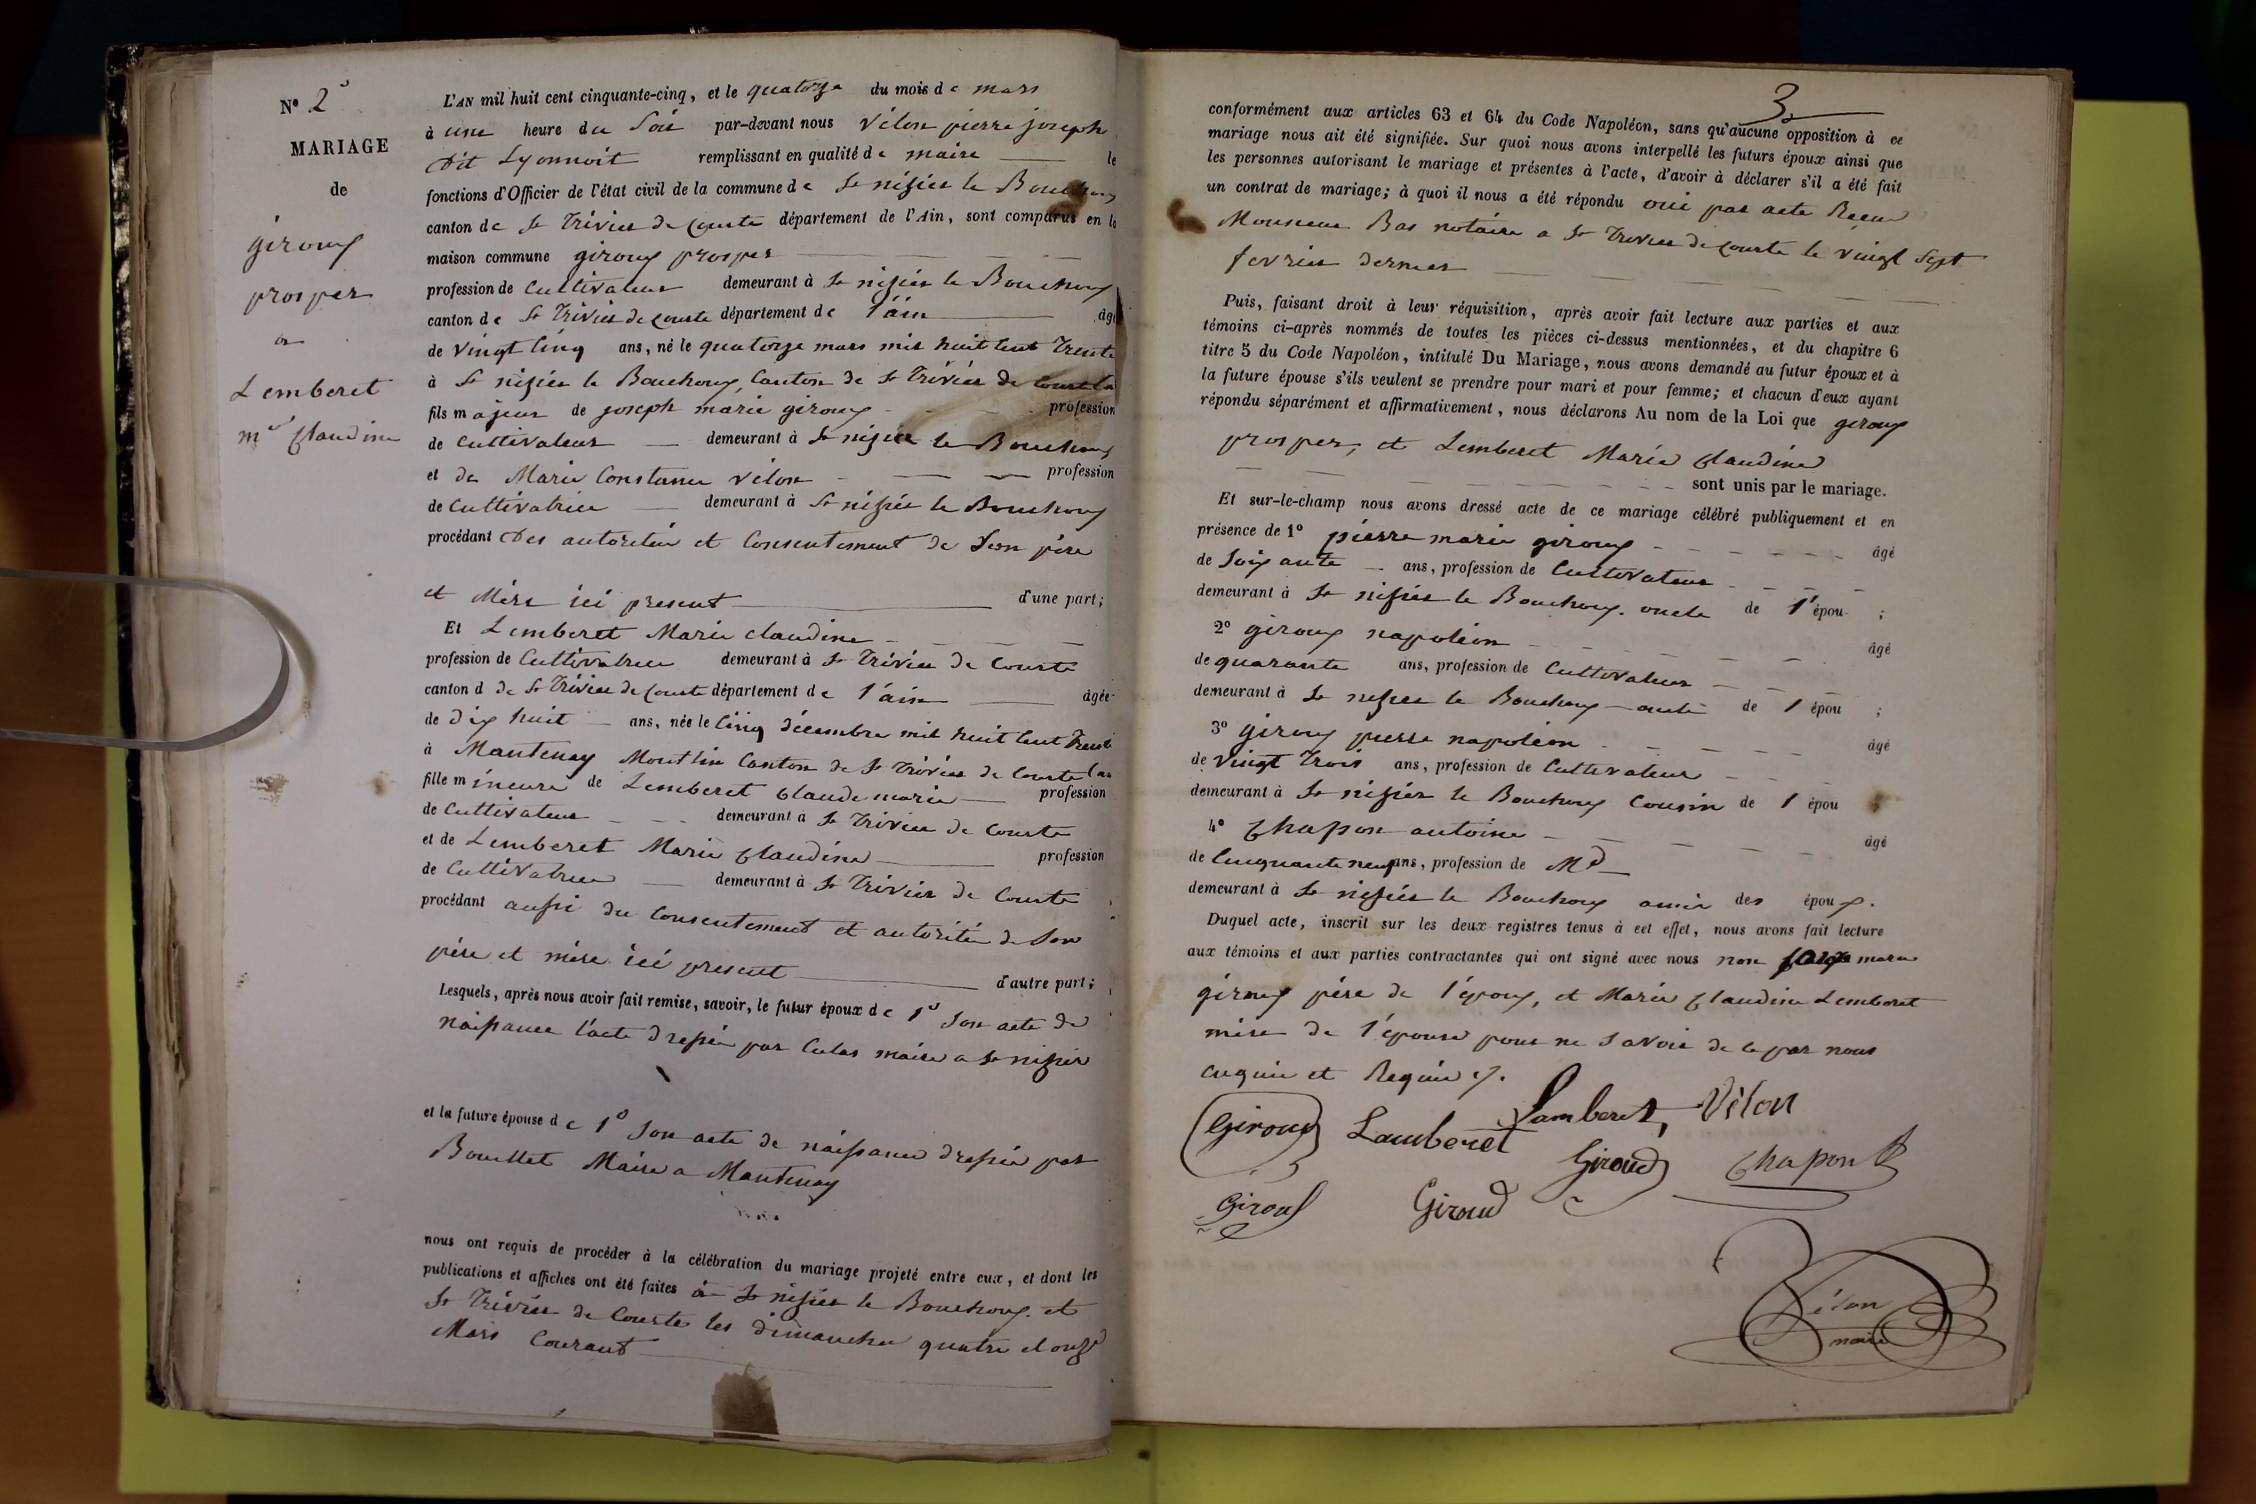 N° 2
MARIAGE
de
giroux
prosper
et
Lemberet
mie Claudine
L'AN mil huit cent cinquante-cinq, et le quatorze du mois de mars
à une heure du Soir par-devant nous Vélon pierre joseph
dit Lyonnoit remplissant en qualité de maire le
fonctions d'Officier de l'état civil de la commune de St nisier le Bouchoux
canton de St Trivier de Courte département de l'Ain, sont comparus en la
maison commune giroux prosper
profession de Cultivateur demeurant à St nisier le Bouchoux
canton de St Trivier de Courte département de l'ain âgé
de Vingt Cinq ans, né le quatorze mars mil huit Cent Trente
à St nisier le Bouchoux, Canton de St Trivier de Courte
fils majeur de joseph marie giroux profession
de Cultivateur demeurant à St nisier le Bouchoux
et de Marie Constance Vélon profession
de Cultivatrice demeurant à St nisier le Bouchoux
procédant des autoritée et Consentement de Son père
et Mère ici present d'une part;
Et Lemberet Marie Claudine
profession de Cultivatrice demeurant à St Trivier de Courte
canton d de St Trivier de Courte département de l'ain âgée
de dix huit ans, née le Cinq décembre mil huit Cent Trente
à Mantenay Montlin Canton de St Trivier de Courte
fille mineure de Lemberet Claude marie profession
de Cultivateur demeurant à St Trivier de Courte
et de Lemberet Marie Claudine profession
de Cultivatrice demeurant à St Trivier de Courte
procédant aussi du Consentement et autoritée de Son
père et mère ici present d'autre part;
Lesquels, après nous avoir fait remise, savoir, le futur époux de 1° Son acte de
naissance l'acte dressée par maire a St nisier
et la future épouse de 1° Son acte de naissance dressée par
Bouillet Maire a Mantenay
nous ont requis de procéder à la célébration du mariage projeté entre eux, et dont les
publications et affiches ont été faites à St nisier le Bouchoux et
St Trivier de Courte les dimanches quatre et onze
Mars Courant
3
conformément aux articles 63 et 64 du Code Napoléon, sans qu'aucune opposition à ce
mariage nous ait été signifiée. Sur quoi nous avons interpellé les futurs époux ainsi que
les personnes autorisant le mariage et présentes à l'acte, d'avoir à déclarer s'il a été fait
un contrat de mariage; à quoi il nous a été répondu oui par acte Reçu
Monsieur Bas notaire a St Trivier de Courte le Vingt Sept
fevrier dernier
Puis, faisant droit à leur réquisition, après avoir fait lecture aux parties et aux
témoins ci-après nommés de toutes les pièces ci-dessus mentionnées, et du chapitre 6
titre 5 du Code Napoléon, intitulé Du Mariage, nous avons demandé au futur époux et à
la future épouse s'ils veulent se prendre pour mari et pour femme; et chacun d'eux ayant
répondu séparément et affirmativement, nous déclarons Au nom de la Loi que giroux
prosper, et Lemberet Marie Claudine
sont unis par le mariage.
Et sur-le-champ nous avons dressé acte de ce mariage célébré publiquement et en
présence de 1° pierre marie giroux âgé
de Soixante ans, profession de Cultivateur
demeurant à St nisier le Bouchoux. oncle de l'épou ;
2° giroux napoléon âgé
de quarante ans, profession de Cultivateur
demeurant à St nisier le Bouchoux oncle de l épou ;
3° giroux pierre napoléon âgé
de Vingt Trois ans, profession de Cultivateur
demeurant à St nisier le Bouchoux Cousin de l épou ;
4° Chapon antoine âgé
de Cinquante neuf ans, profession de Md
demeurant à St nisier le Bouchoux amie des époux.
Duquel acte, inscrit sur les deux registres tenus à cet effet, nous avons fait lecture
aux témoins et aux parties contractantes qui ont signé avec nous non
giroux père de l'époux, et Marie Claudine Lemberet
mère de l'épouse pour ne Savoir de ce par nous
enquie et Requie ./.
Giroud Lamberet Lamberet Vélon
Giroud Chapon
Giroud Giroud
Vélon
maire